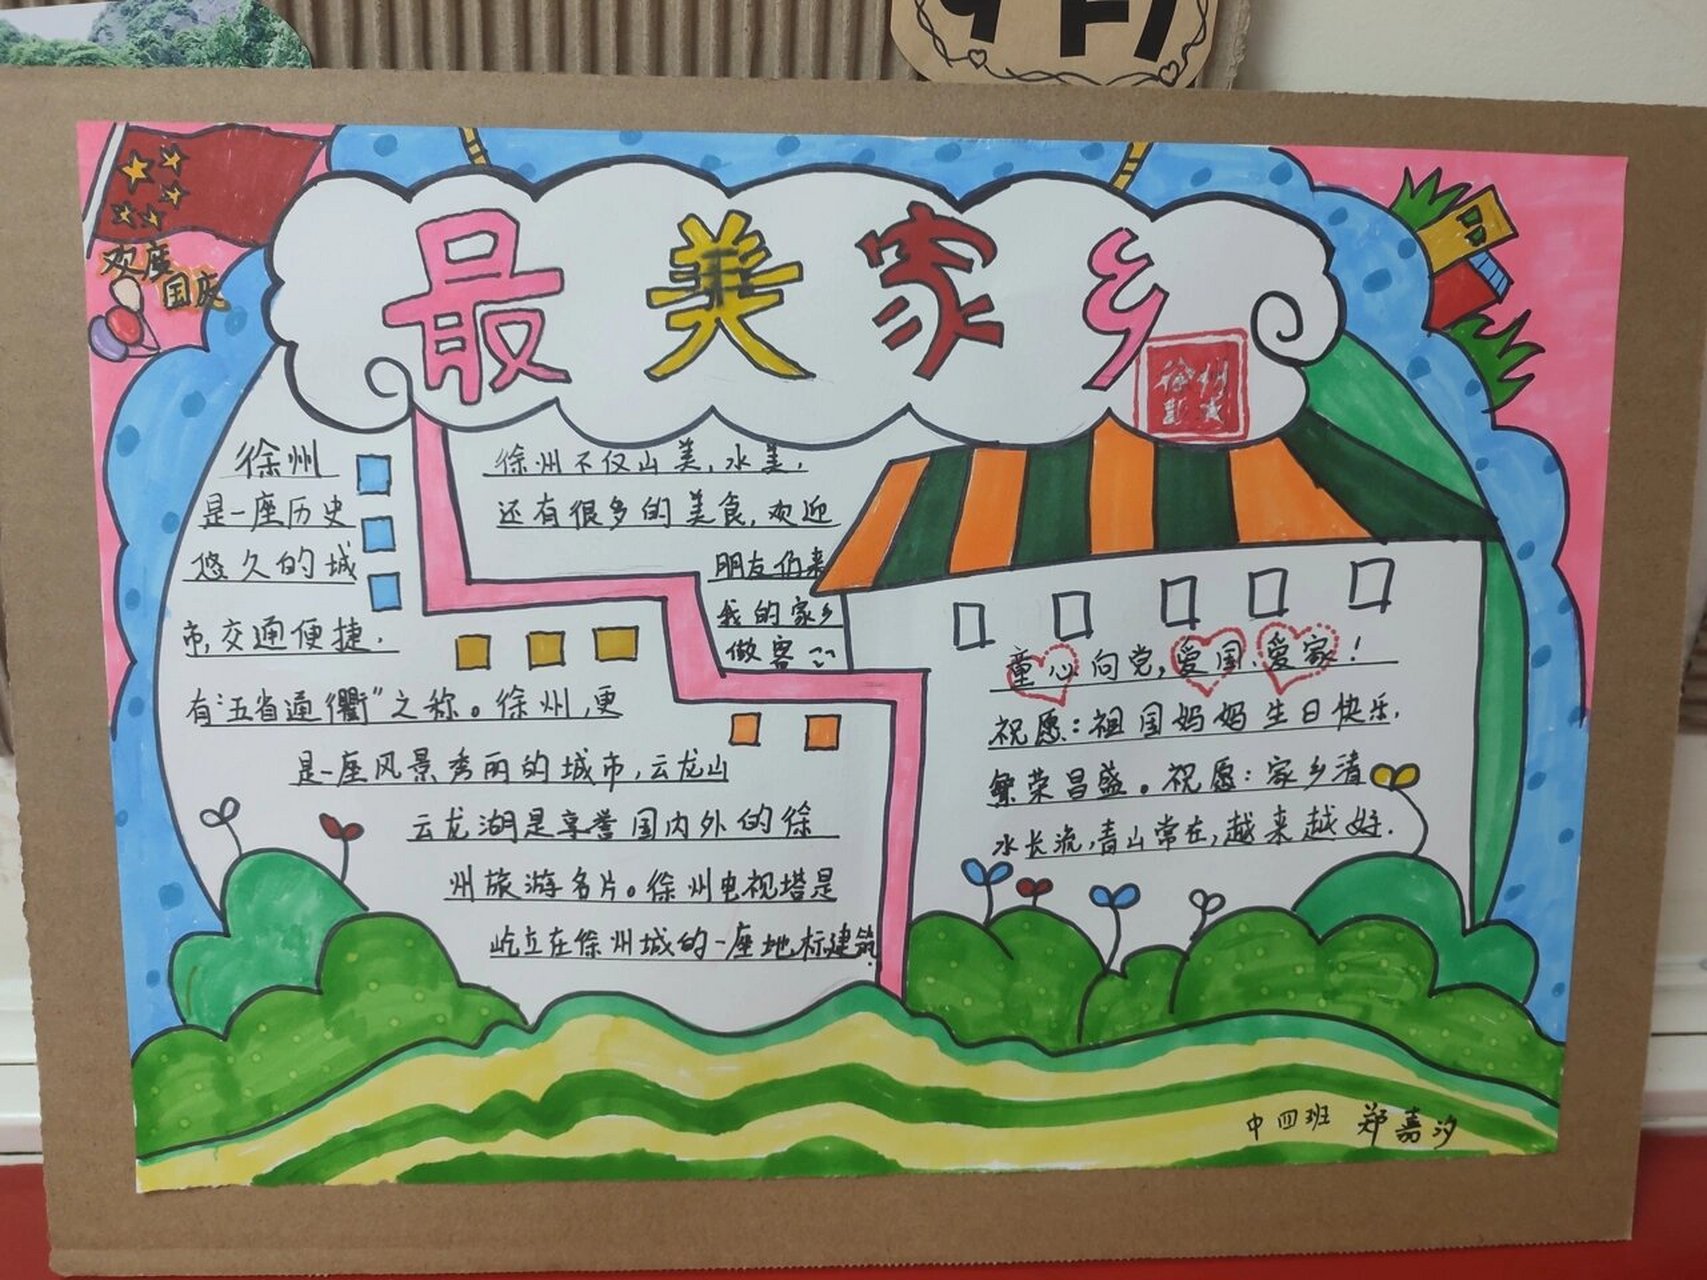 欢度
国庆
最美家乡
徐州
徐州
是一座历史
悠久的城
市,交通便捷.
有“五省通衢”之称。徐州,更
是一座风景秀丽的城市,云龙山
云龙湖是享誉国内外的徐
州旅游名片。徐州电视塔是
屹立在徐州城的一座地标建筑.
徐州不仅山美,水美,
还有很多的美食,欢迎
朋友们来
我的家乡
做客~~
童心向党,爱国、爱家!
祝愿:祖国妈妈生日快乐.
繁荣昌盛。祝愿:家乡清
水长流,青山常在,越来越好.
中四班 郑嘉汐